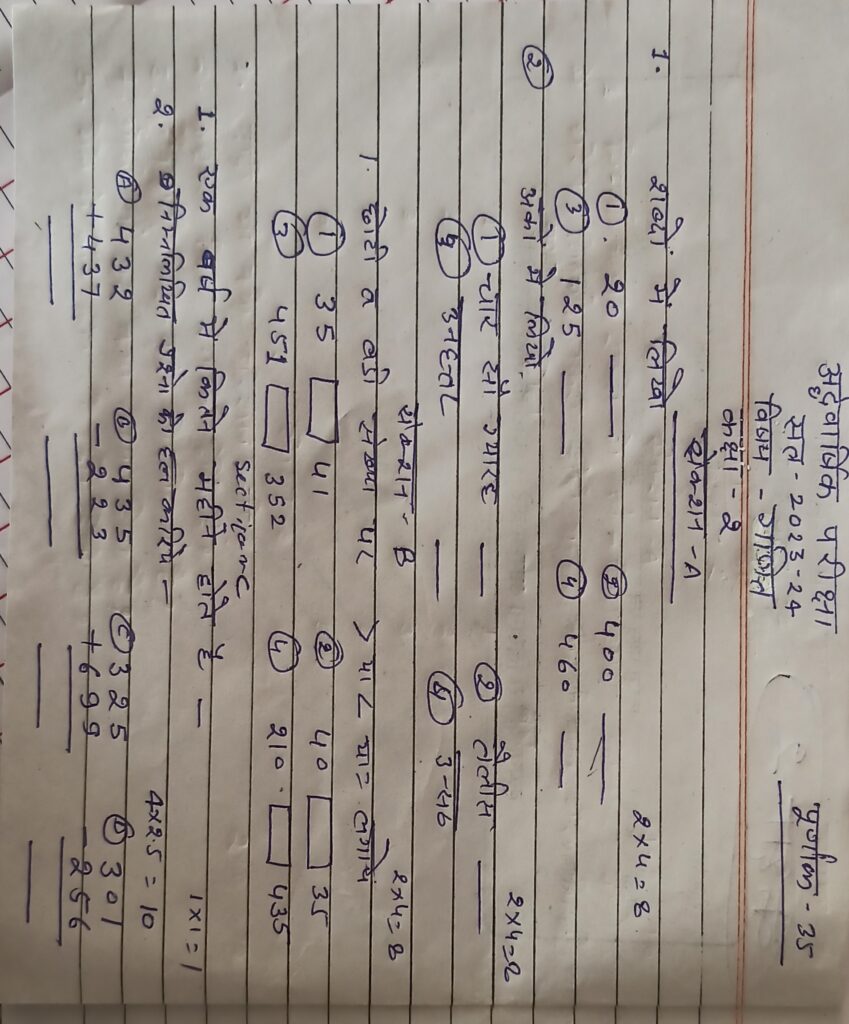 अर्द्धवार्षिक परीक्षा
सत्र - 2023-24
विषय - गणित
पूर्णांक - 35
कक्षा - 2
सेक्शन - A
1. शब्दों में लिखो 2×4=8
① 20 — ② 400 —
③ 125 — ④ 460 —
② अंको में लिखो 2×4=8
① चार सौ ग्यारह — ② तैंतीस —
③ उनहत्तर — ④
सेक्शन - B
1. छोटी व बड़ी संख्या पर > या < चिन्ह लगाये 2×4=8
① 35 □ 41 ② 40 □ 35
③ 451 □ 352 ④ 210 □ 435
Section-C
1. एक वर्ष में कितने महीने होते है — 1×1=1
2. निम्नलिखित प्रश्नो को हल करिये — 4×2.5=10
Ⓐ 432 Ⓑ 435 Ⓒ 325 Ⓓ 301
+437 -223 +699 -256